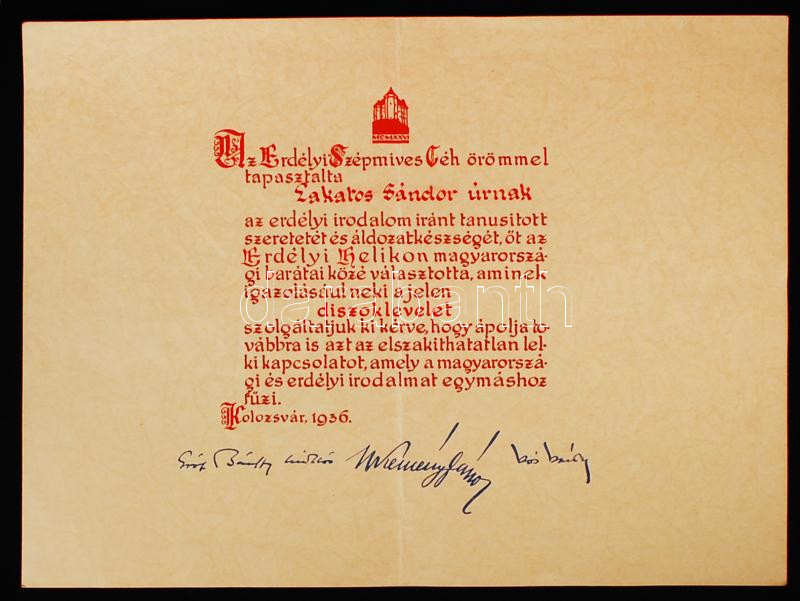 MCMXXVI
Az Erdélyi Szépmives Céh örömmel
tapasztalta
Lakatos Sándor úrnak
az erdélyi irodalom iránt tanusitott
szeretetét és áldozatkészségét, őt az
Erdélyi Helikon magyarorszá-
gi barátai közé választotta, aminek
igazolásául neki a jelen
diszoklevelet
szolgáltatjuk ki kérve, hogy ápolja to-
vábbra is azt az elszakithatatlan lel-
ki kapcsolatot, amely a magyarorszá-
gi és erdélyi irodalmat egymáshoz
fűzi.
Kolozsvár, 1936.
Gróf Bánffy Miklós Kemény János Kós Károly
darabanth